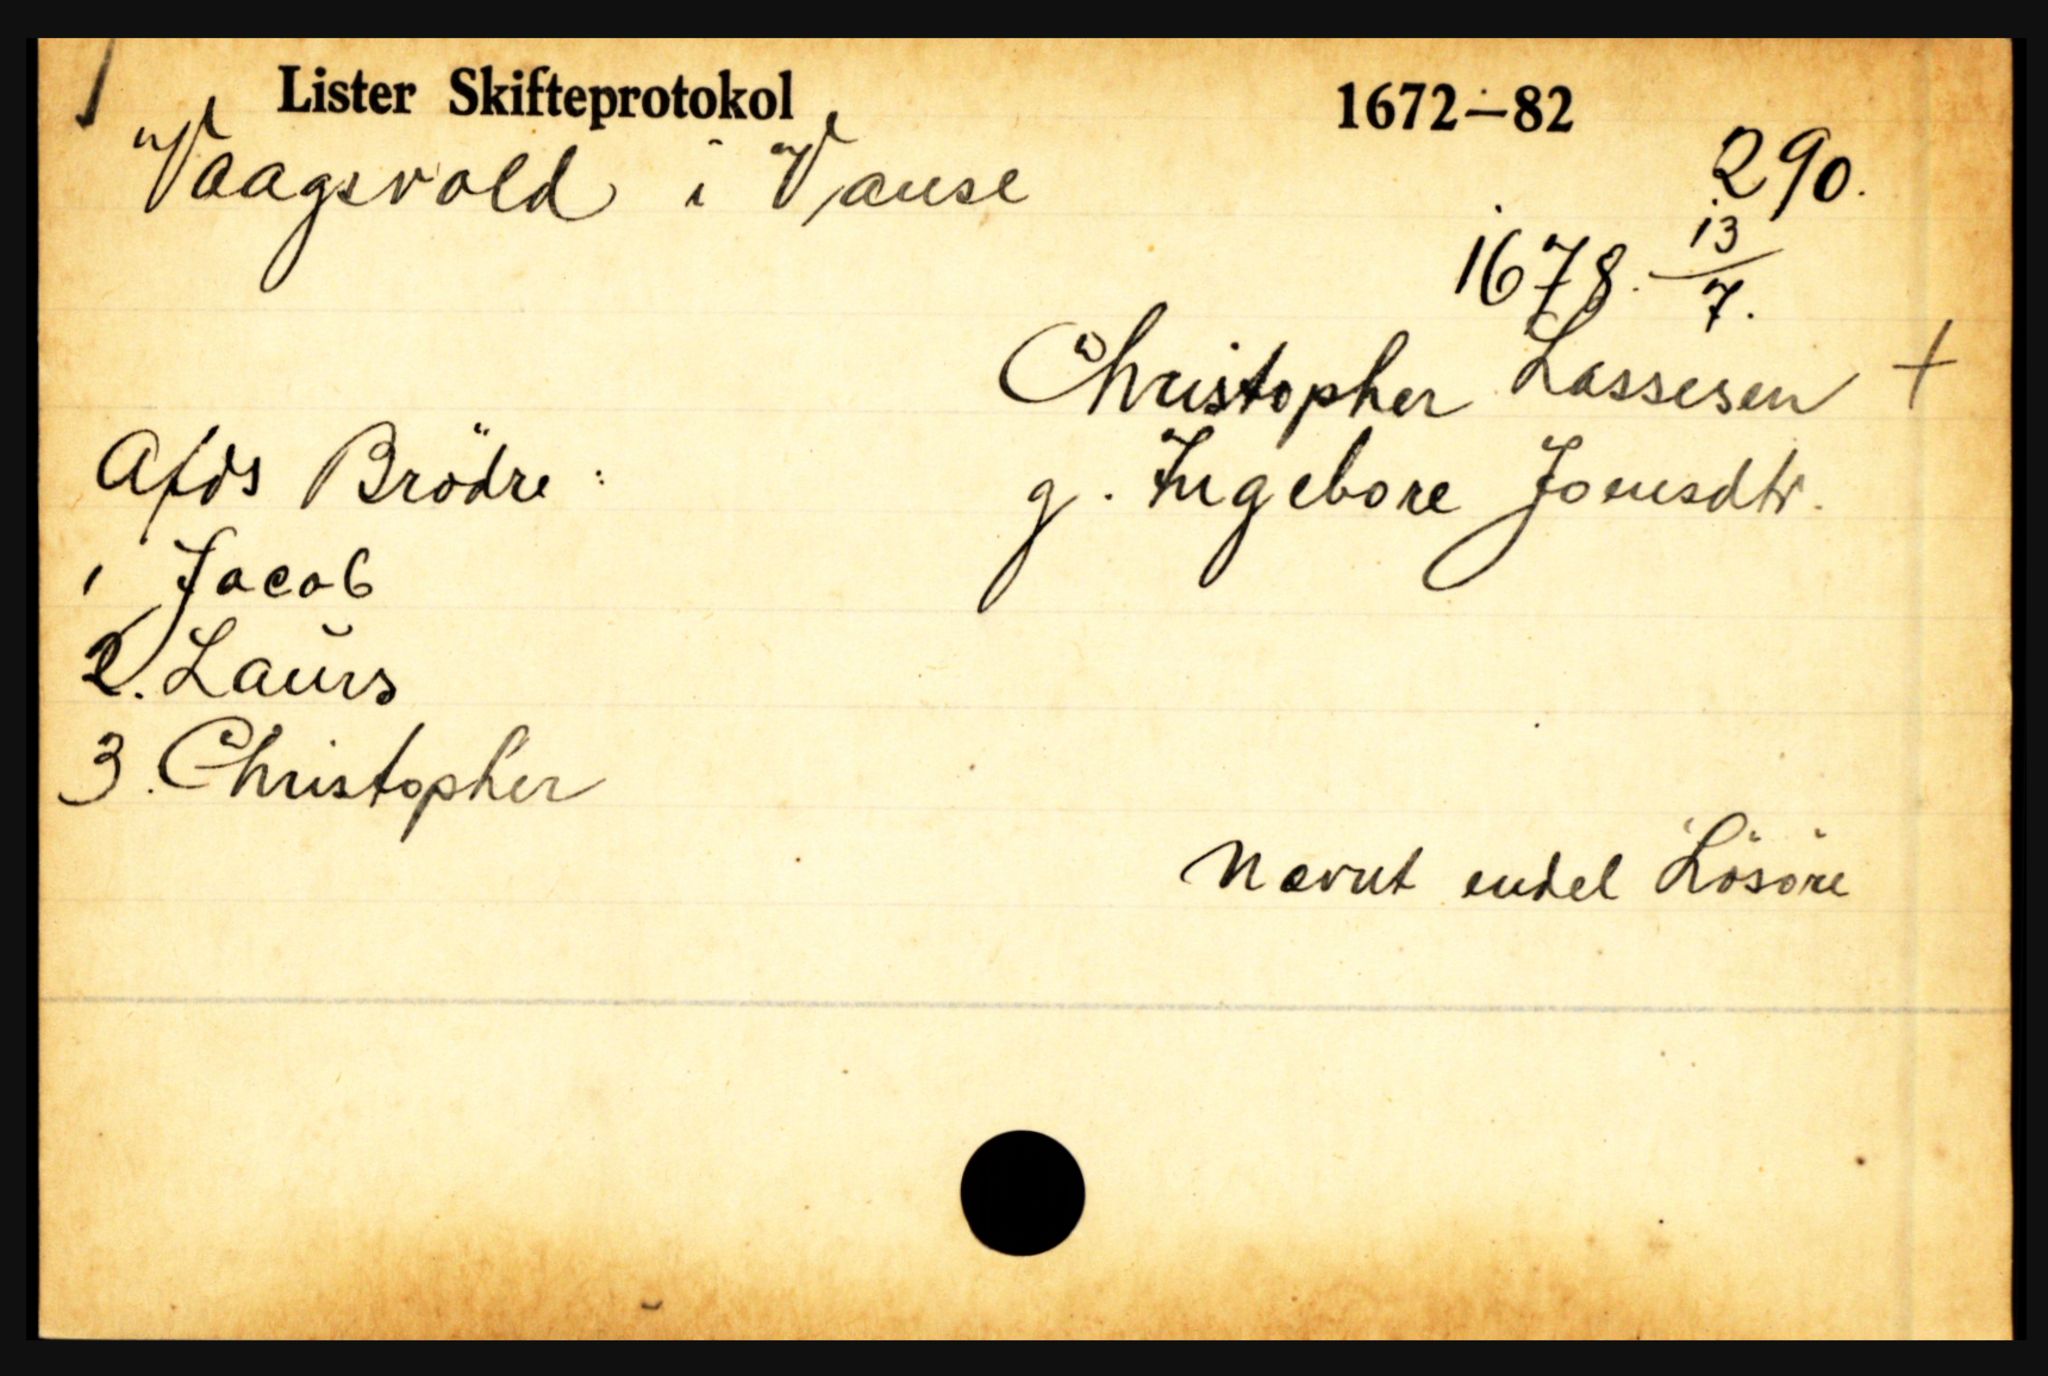 Lister Skifteprotokol 1672-82
Vaagsvold i Vanse 290.
1678. 13/7.
Christopher Lassesen +
Afds Brödre: g. Ingebore Jonusdtr.
1 Jacob
2. Laurs
3. Christopher
Nævnt endel Lösöre